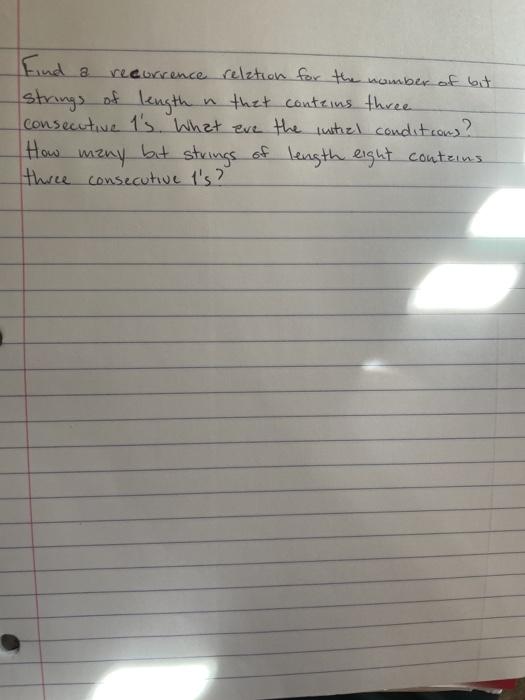 Find a recurrence relation for the number of bit
strings of length n that contains three
consecutive 1's. What are the initial conditions?
How many bit strings of length eight contains
three consecutive 1's?